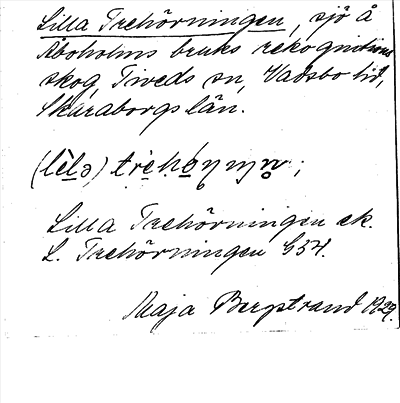 Lilla Trehörningen, sjö å
Aboholms bruks rekognitions
skog, Tiveds sn, Vadsbo hd,
Skaraborgs län.
Lilla Trehörningen ek.
L. Trehörningen G 34.
Maja Bergstrand 1929.